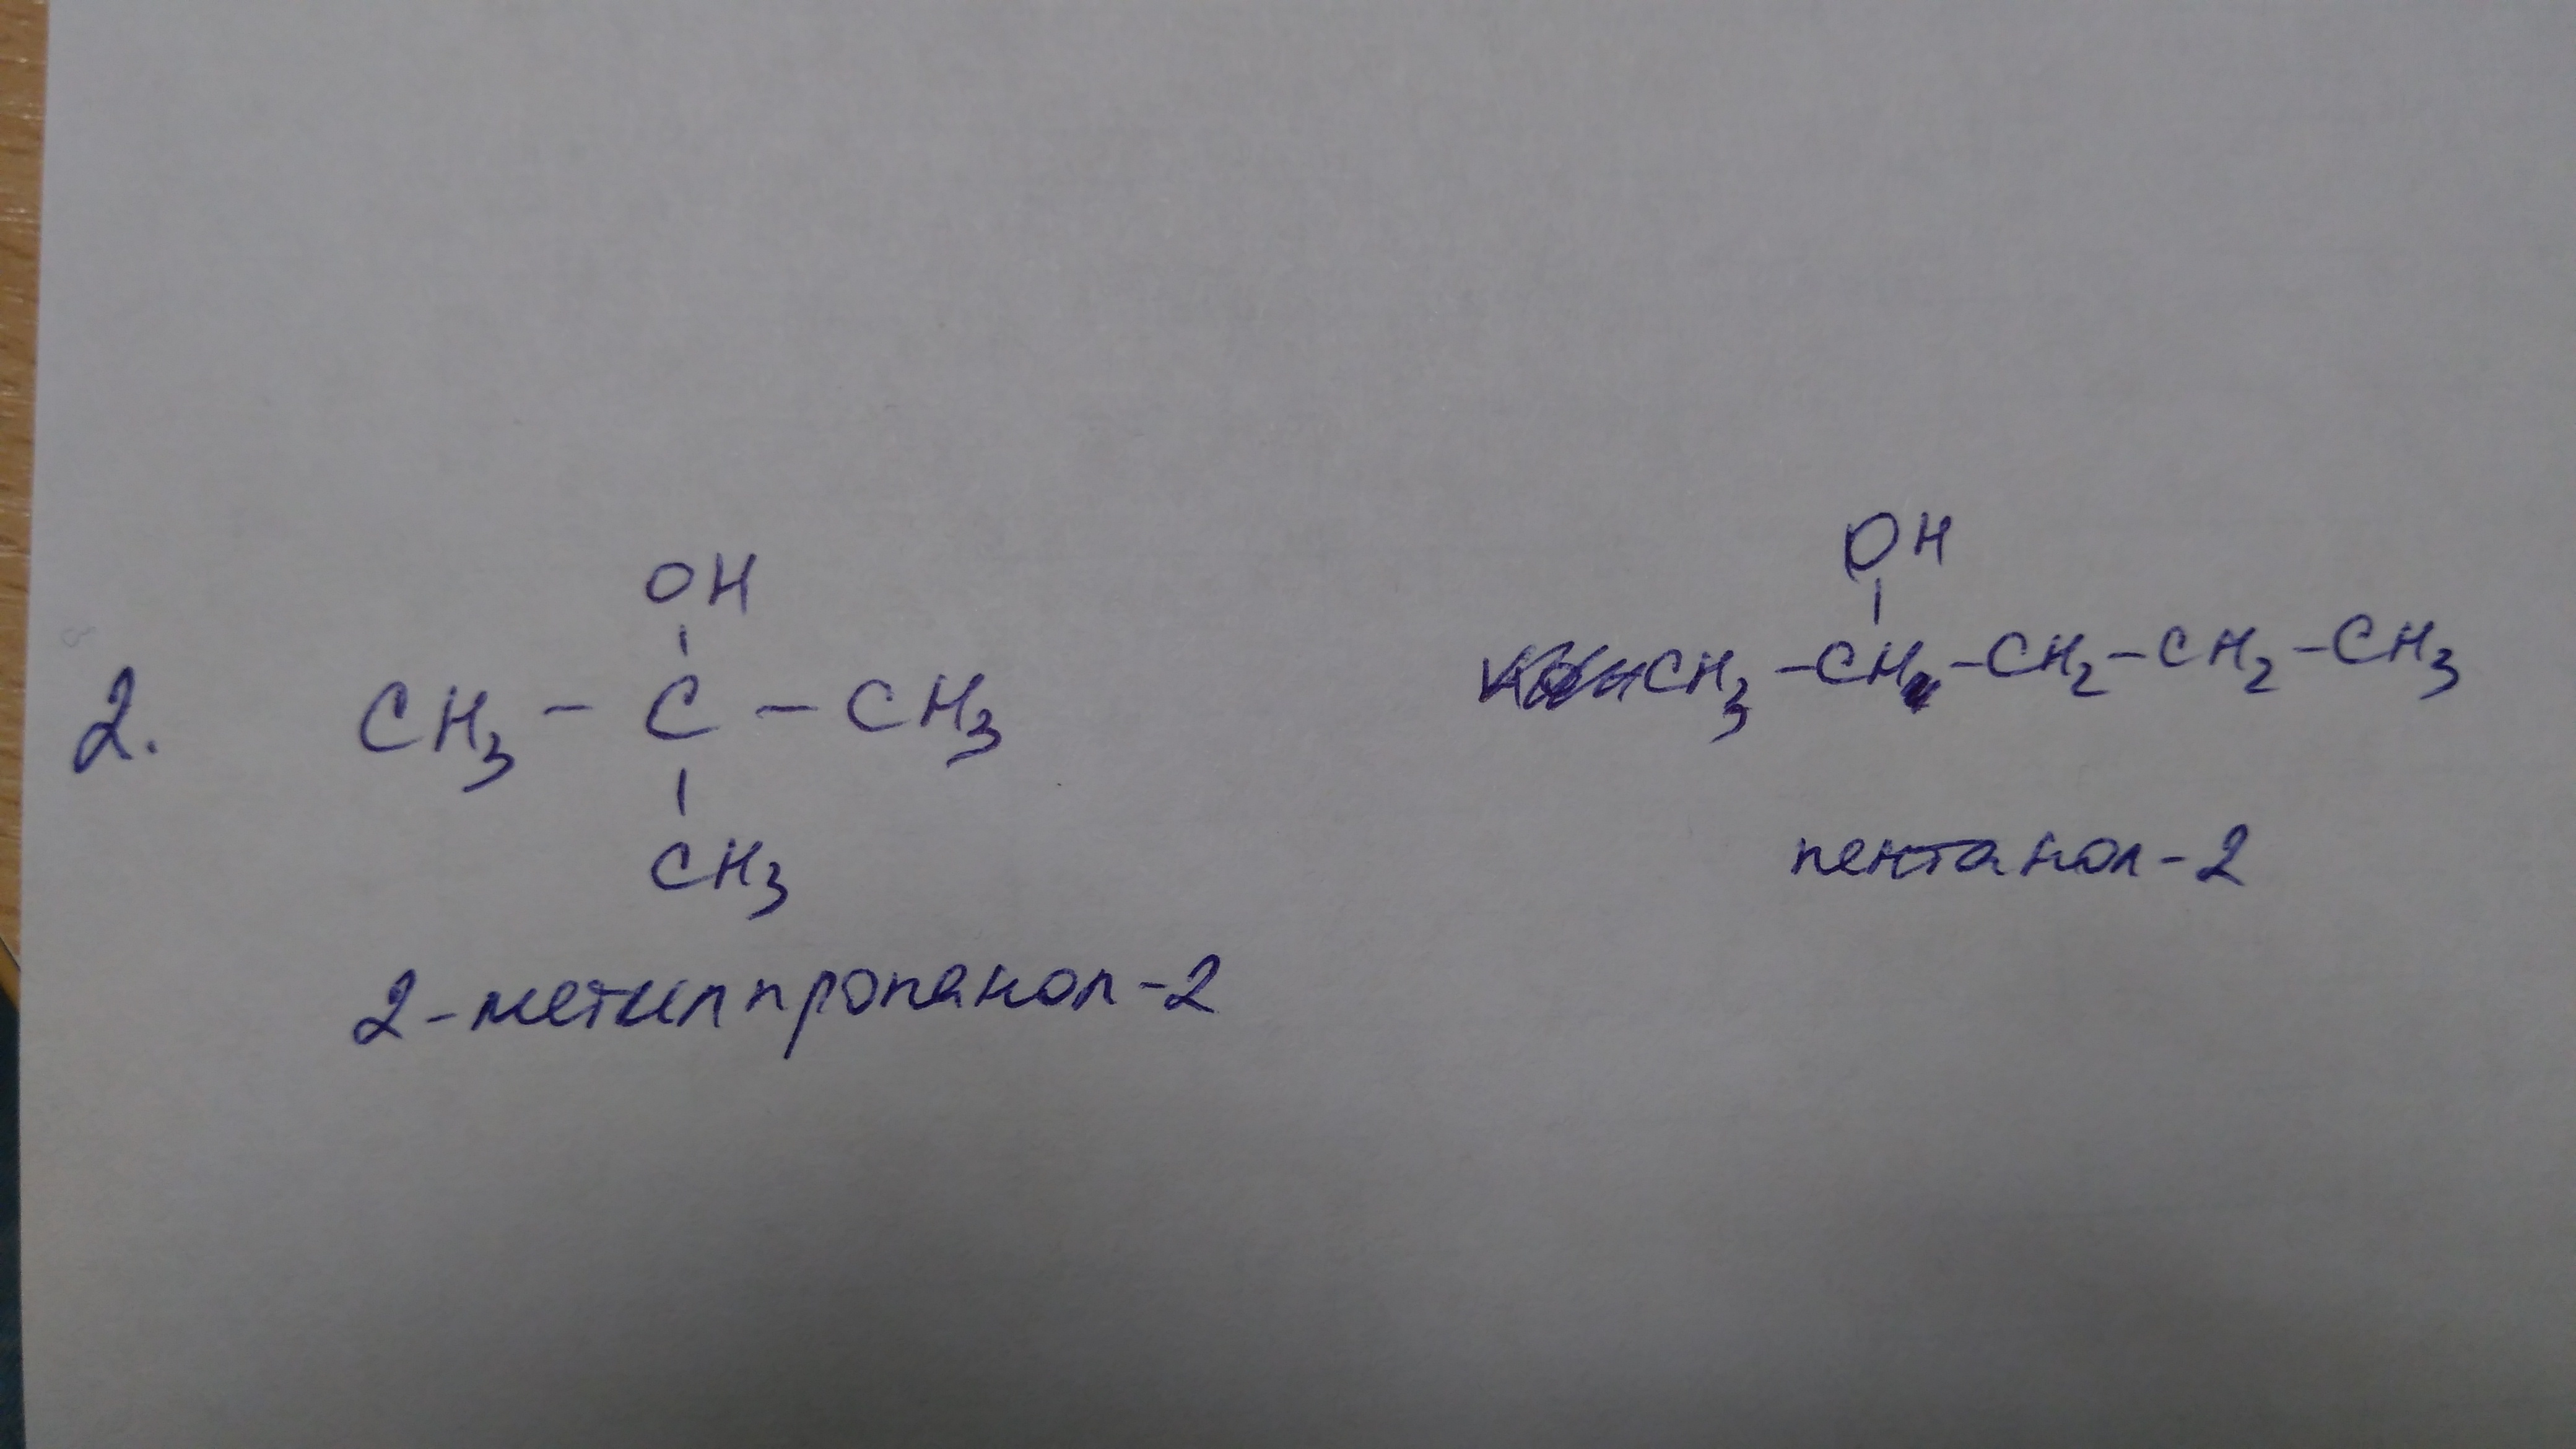 2.
OH
CH3 - C - CH3
CH3
2-метилпропанол-2
OH
CH3 - CH - CH2 - CH2 - CH3
пентанол-2